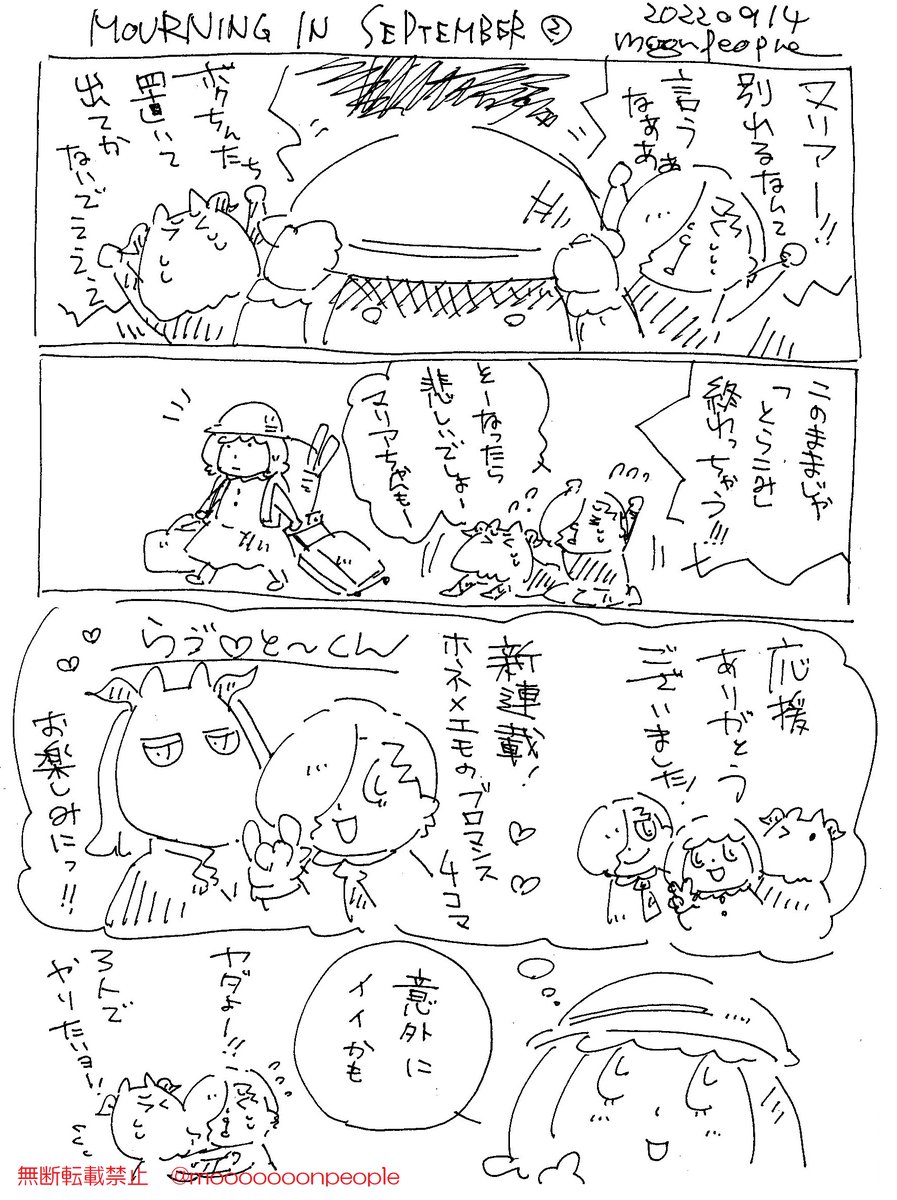 MOURNING IN SEPTEMBER ②
20220914
moonpeople
マリアー!!
別れるなんて
言うなぁ
なぁぁぁ
ボクちんたち
置いて
出てか
ないでえええ
このままじゃ
「とらこみ」
終わっちゃう!!!
そーなったら
悲しいでしょー
マリアちゃんもー
応援
ありがとう
ございました!
新連載!
ホネ×エモのブロマンス
4コマ
らぶ♡と〜くん
お楽しみにっ!!
意外に
イイかも
ヤダよー!!
3人で
やりたいヨー!
無断転載禁止 @mooooooonpeople